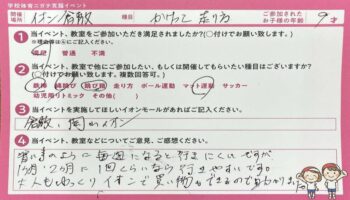 学校体育ニガテ克服イベント
開催場所 イオン倉敷 種目 かけっこ 走り方 ご参加された お子様の年齢 9才
1 当イベント、教室をご参加いただき満足されましたか?(○付けでお願い致します。)
満足 普通 不満
2 当イベント、教室で他にご参加したい、もしくは開催してもらいたい種目はございますか?
(○付けでお願い致します。複数回答可。)
鉄棒 縄跳び 跳び箱 走り方 ボール運動 マット運動 サッカー
幼児用リトミック その他( )
3 当イベントを実施してほしいイオンモールがあればご記入ください。
倉敷、岡山イオン
4 当イベント、教室などについてのご意見、ご感想ください。
習い事のように毎週になると行きにくいですが
1ヶ月・2ヶ月に1回くらいなら行きやすいです。
大人もゆっくりイオンで買い物ができるので